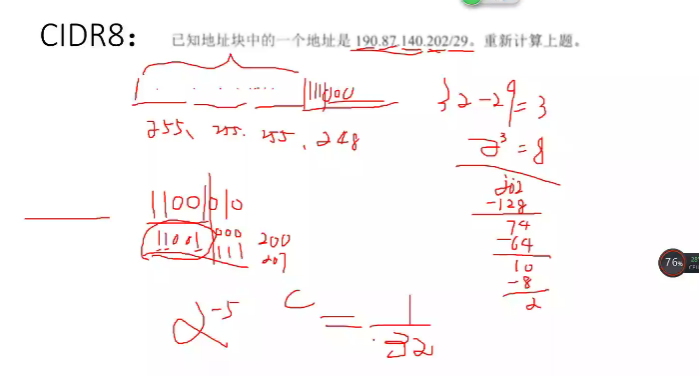 CIDR8： 已知地址块中的一个地址是 190.87.140.202/29。重新计算上题。
11111000
255、255.255、248
32-29=3
2³=8
202
-128
74
-64
10
-8
2
11001010
11001 000 200
111 207
2⁻⁵ = 1/32
76%